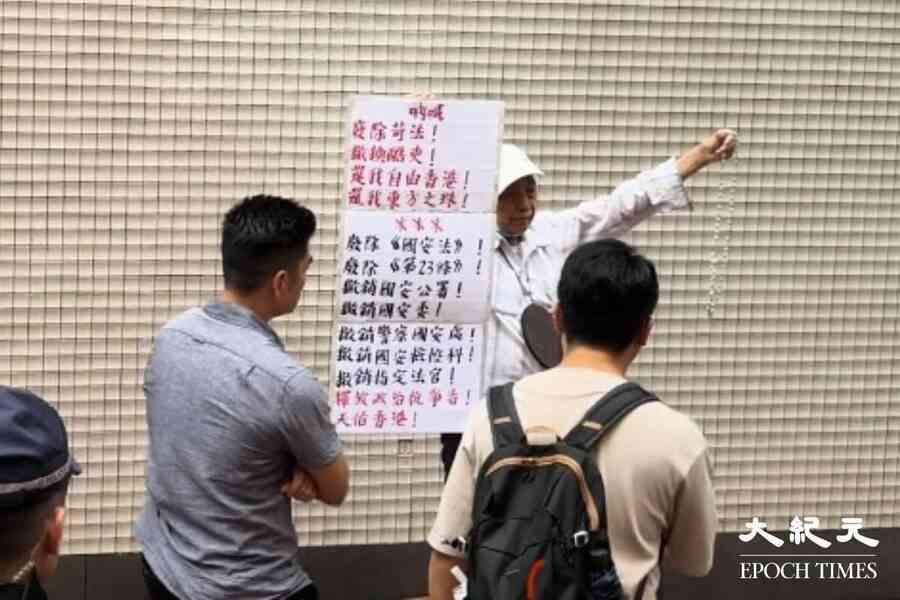 廢除苛法!
撤換酷吏!
還我自由香港!
還我東方之珠!
廢除《國安法》!
廢除《第23條》!
撤銷國安公署!
撤銷國安委!
撤銷警察國安處!
撤銷國安檢控科!
撤銷指定法官!
釋放政治抗爭者!
天佑香港!
大紀元
EPOCH TIMES